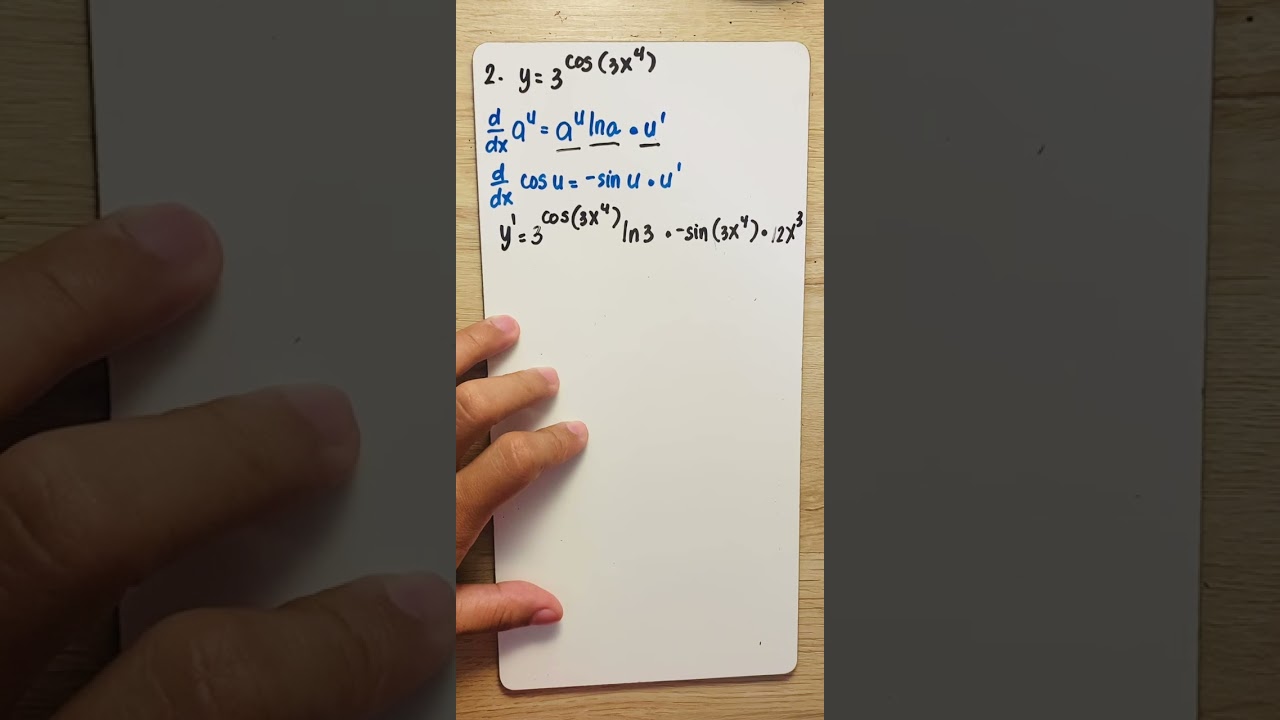 2. y = 3^cos(3x^4)
d/dx a^u = a^u ln a • u'
d/dx cos u = -sin u • u'
y' = 3^cos(3x^4) ln 3 • -sin(3x^4) • 12x^3